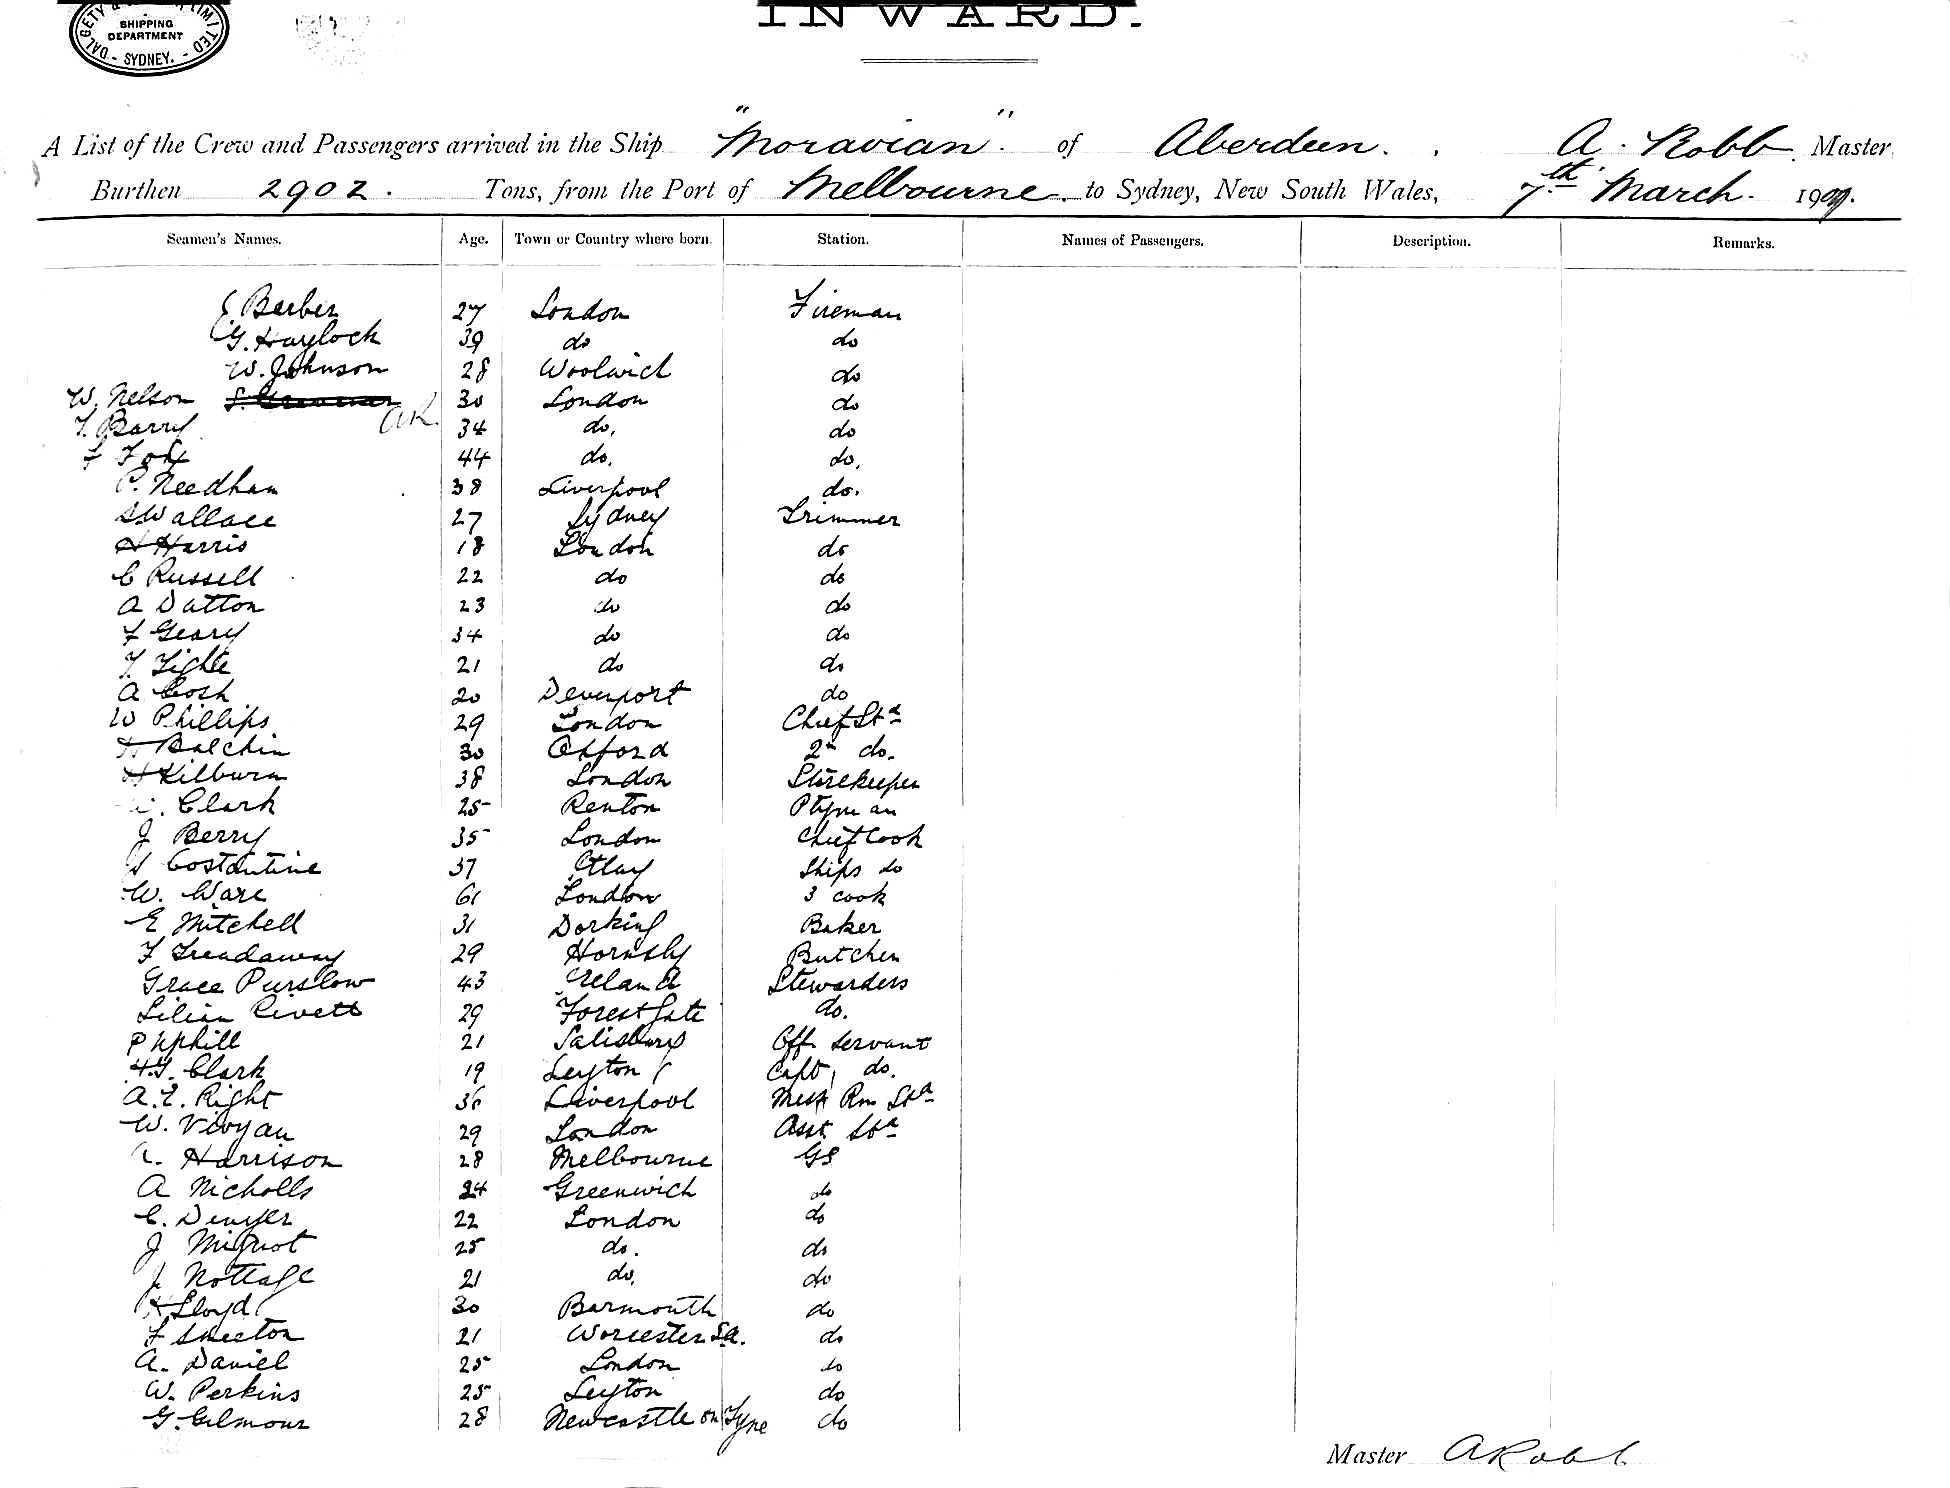 SHIPPING
DEPARTMENT
SYDNEY.
INWARD.
A List of the Crew and Passengers arrived in the Ship "Moravian" of Aberdeen. A. Robb Master
Burthen 2902. Tons, from the Port of Melbourne to Sydney, New South Wales, 7th March. 190
Seamen's Names. Age. Town or Country where born. Station. Names of Passengers. Description. Remarks.
Barber 27 London Fireman
G. Haylock 39 do do
W. Johnson 28 Woolwich do
W. Nelson 30 London do
AR.
T. Barry 34 do. do
F Fox 44 do. do.
P. Needham 38 Liverpool do.
S Wallace 27 Sydney Trimmer
H Harris 18 London do
C Russell 22 do do
A Dutton 23 do do
F Geary 34 do do
T. Tighe 21 do do
A Cosh 20 Devenport do
W Phillips 29 London Chief Std
H Balchin 30 Oxford 2n do.
H Kilburn 38 London Storekeeper
Clark 25 Renton
J Berry 35 London Chief Cook
Costantine 37 Otlay Ships do
W. Ware 61 London 3 cook
E Mitchell 31 Dorking Baker
F Treadaway 29 Hornsby Butcher
Grace Purslow 43 Ireland Stewardess
Lilian Rivett 29 Forest Gate do.
P Uphill 21 Salisbury Off. Servant
H.G. Clark 19 Leyton Capt, do.
A.E. Right 36 Liverpool Mess Rm Std
W. Vivyan 29 London Asst Std
Harrison 28 Melbourne GS
A Nicholls 24 Greenwich do
C. Denyer 22 London do
J Mignot 25 do. do
J. Nottage 21 do. do
H Lloyd 30 Barmouth do
F Skeeton 21 Worcester SA. do
A. Daniel 25 London do
W. Perkins 25 Leyton do
G. Gilmour 28 Newcastle on Tyne do
Master A Robb